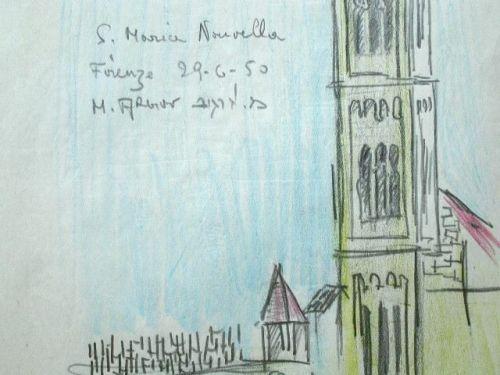 S. Maria Nouvella
Firenze 29-6-50
M. ARGOV מ. ארגוב